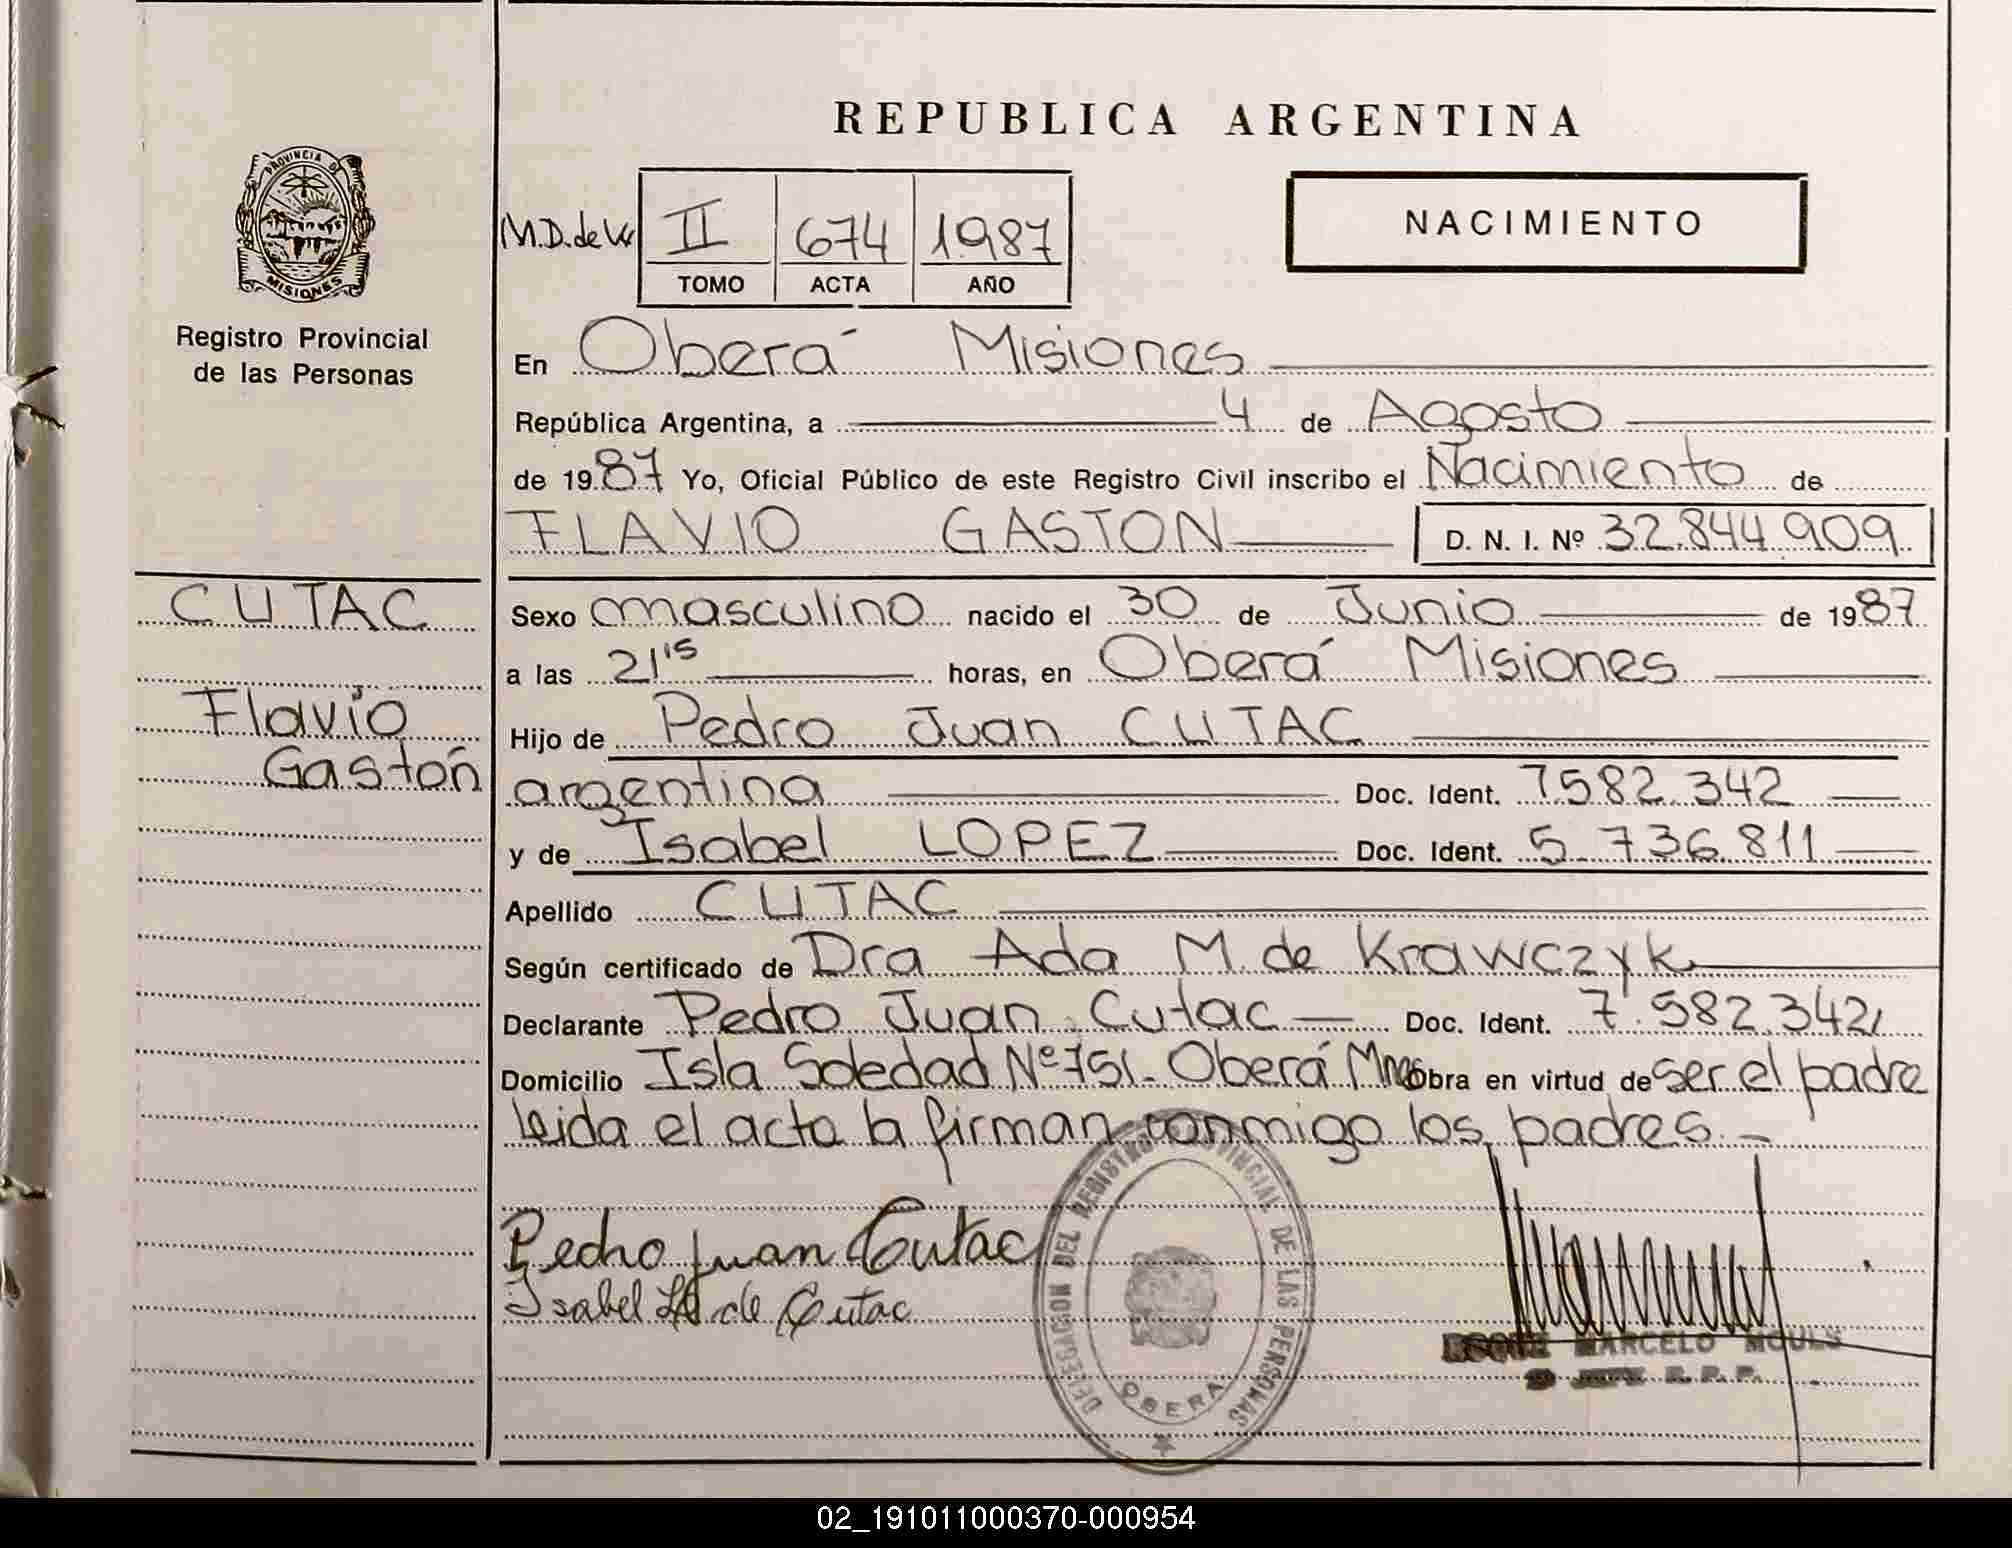 REPUBLICA ARGENTINA
PROVINCIA DE
MISIONES
Registro Provincial
de las Personas
NACIMIENTO
M.D. de W
II 674 1987
TOMO ACTA AÑO
En Oberá Misiones
República Argentina, a 4 de Agosto
de 1987 Yo, Oficial Público de este Registro Civil inscribo el Nacimiento de
FLAVIO GASTON D. N. I. Nº 32.844.909
CUTAC
Flavio
Gastón
Sexo masculino nacido el 30 de Junio de 1987
a las 21'15 horas, en Oberá Misiones
Hijo de Pedro Juan CUTAC
argentina Doc. Ident. 7.582.342
y de Isabel LOPEZ Doc. Ident. 5.736.811
Apellido CUTAC
Según certificado de Dra Ada M. de Krawczyk
Declarante Pedro Juan Cutac Doc. Ident. 7.582.342
Domicilio Isla Soledad Nº 751. Oberá Mnes obra en virtud de ser el padre
leida el acta la firman conmigo los padres.
Pedro Juan Cutac
Isabel de Cutac
DELEGACION DEL REGISTRO PROVINCIAL DE LAS PERSONAS
OBERA
ROQUE MARCELO
R. P. P.
02_191011000370-000954